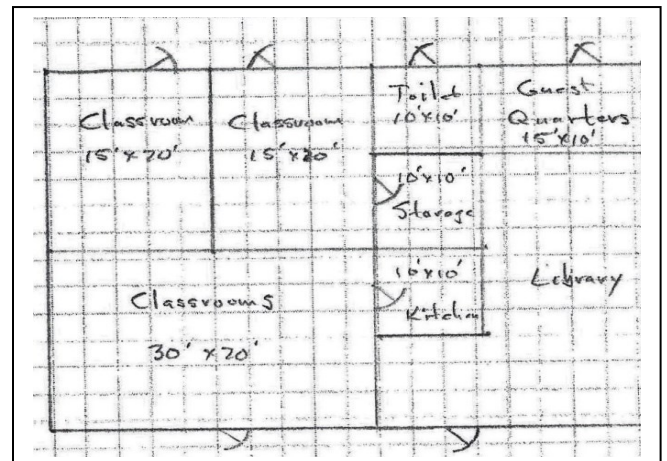 Classroom
15'x20'
Classroom
15'x20'
Toilet
10'x10'
Guest
Quarters
15'x10'
10'x10'
Storage
10'x10'
Kitchen
Library
Classrooms
30'x20'